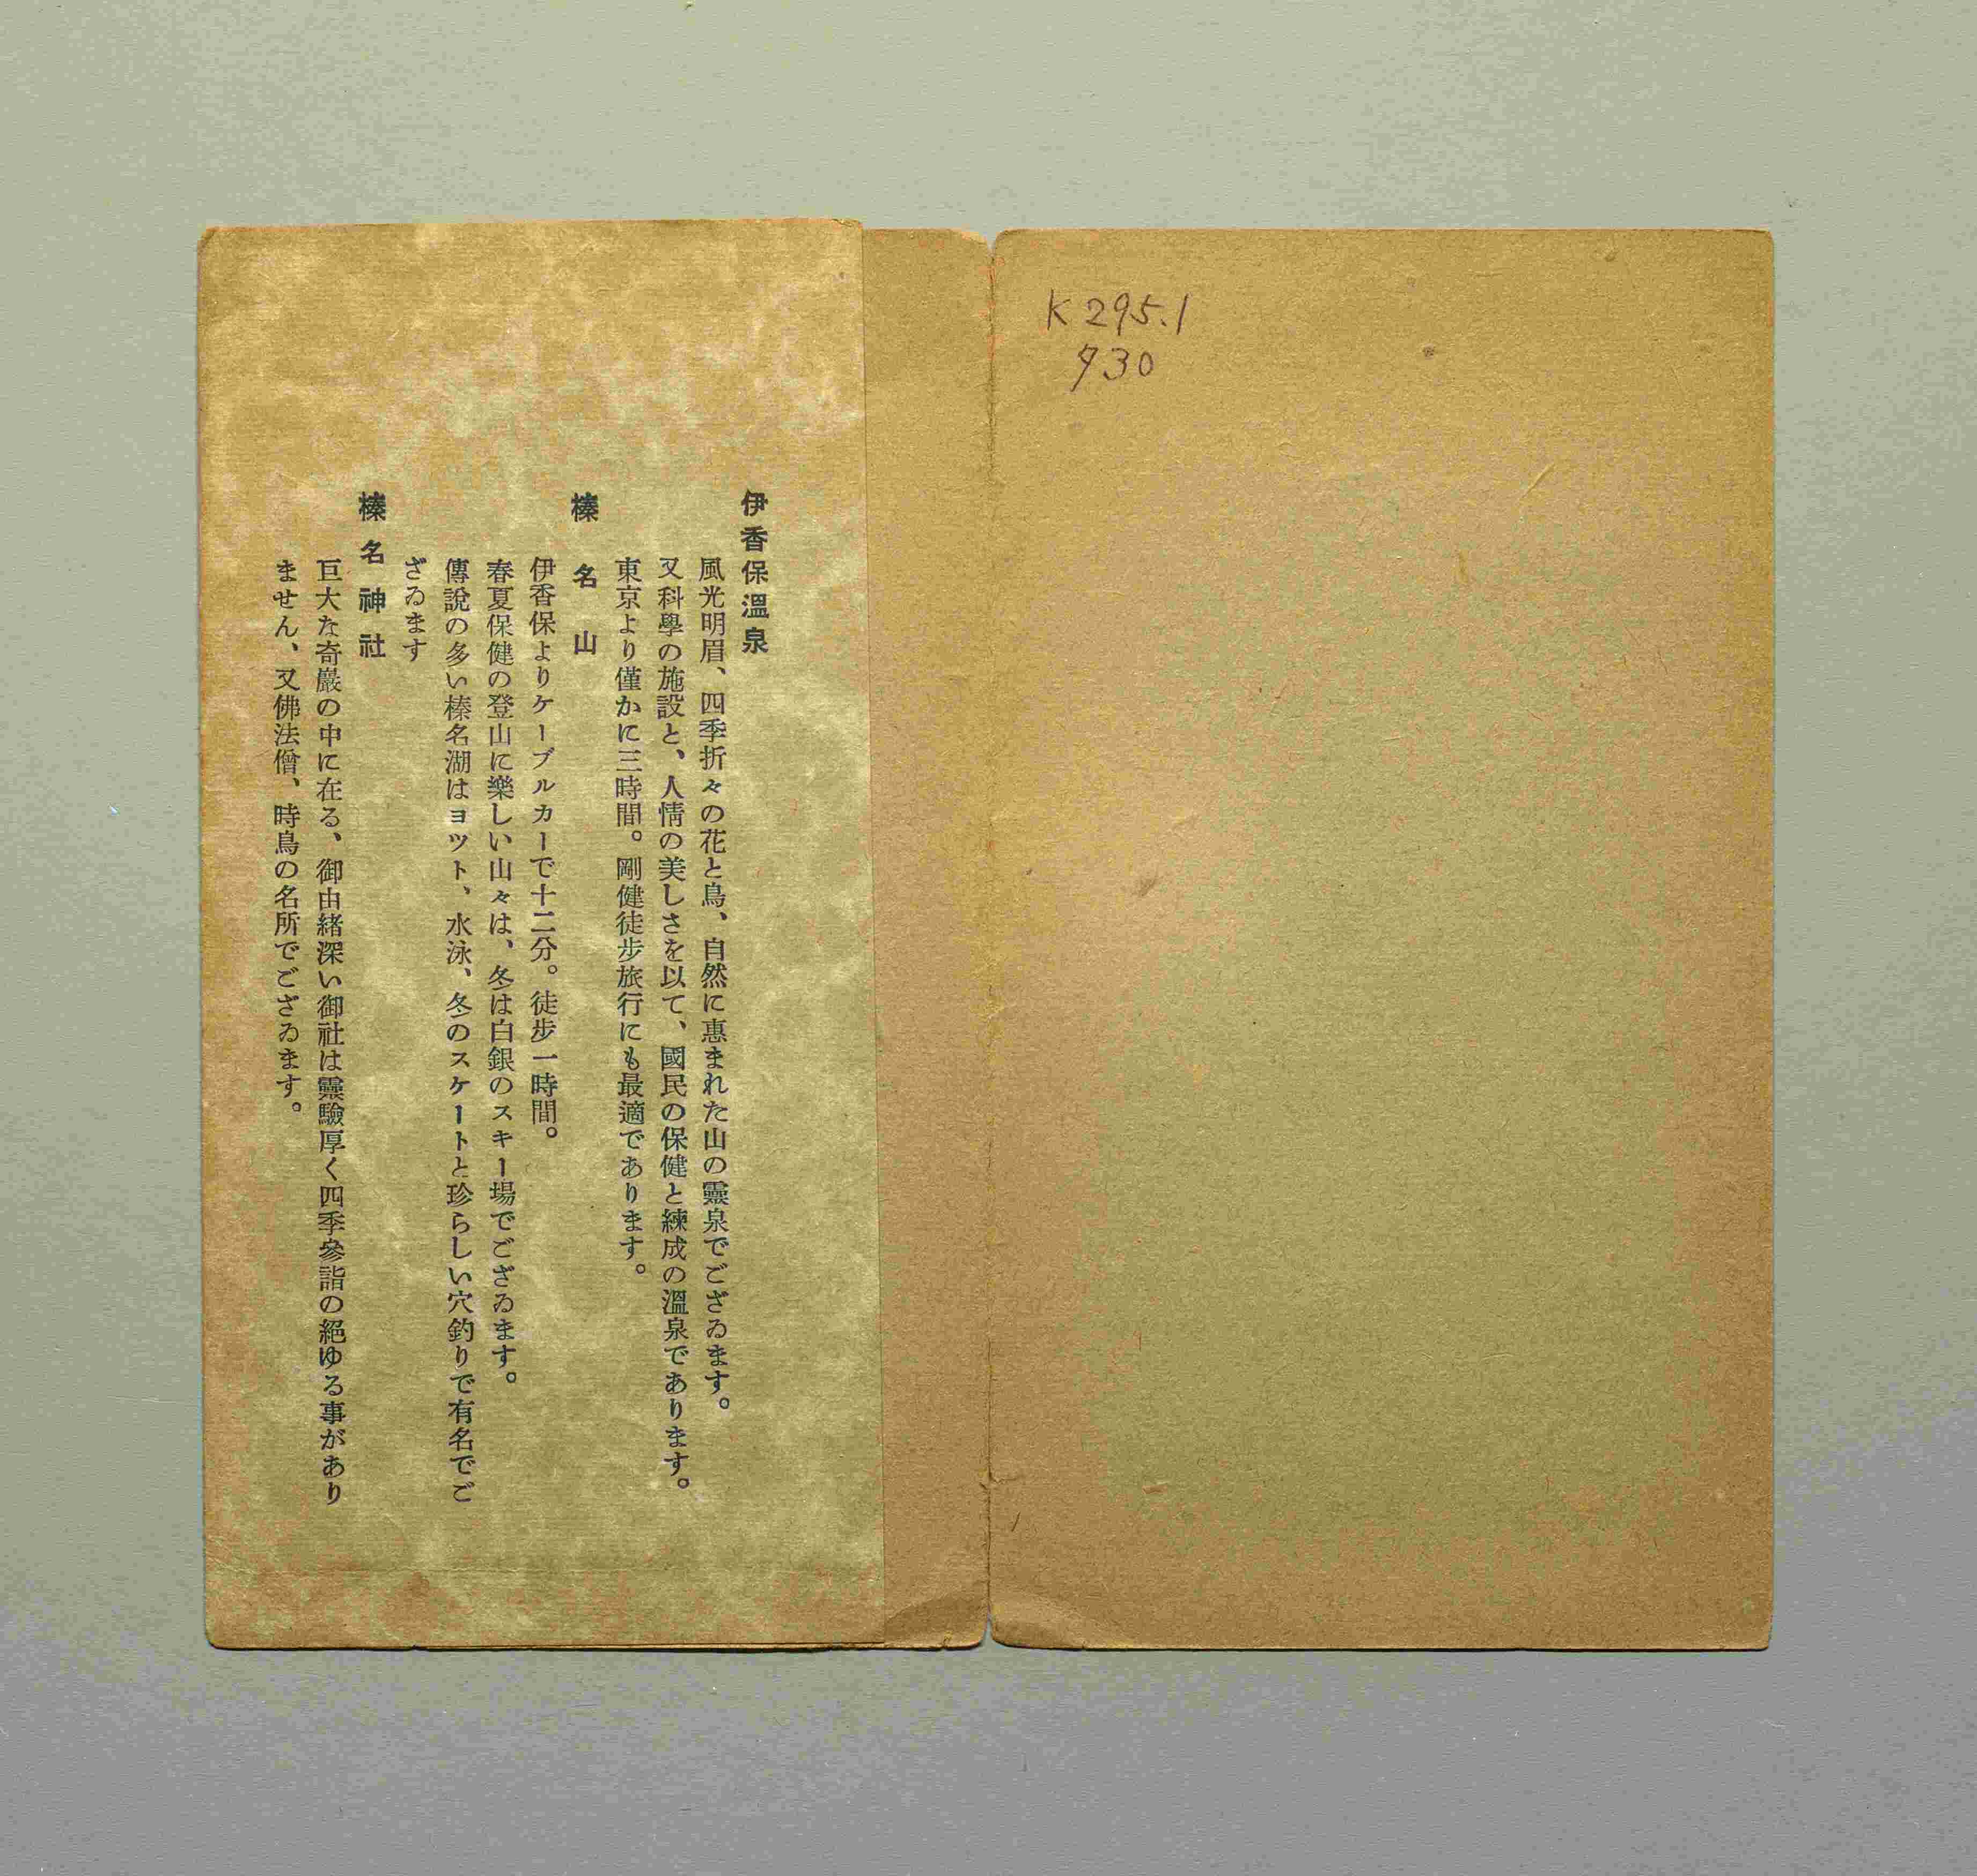 K 295.1
930
伊香保溫泉
風光明眉、四季折々の花と鳥、自然に惠まれた山の靈泉でござゐます。
又科學の施設と、人情の美しさを以て、國民の保健と練成の溫泉であります。
東京より僅かに三時間。剛健徒步旅行にも最適であります。
榛名山
伊香保よりケーブルカーで十二分。徒步一時間。
春夏保健の登山に樂しい山々は、冬は白銀のスキー場でござゐます。
傳說の多い榛名湖はヨツト、水泳、冬のスケートと珍らしい穴釣りで有名でご
ざゐます
榛名神社
巨大な奇巖の中に在る、御由緒深い御社は靈驗厚く四季參詣の絕ゆる事があり
ません、又佛法僧、時鳥の名所でござゐます。